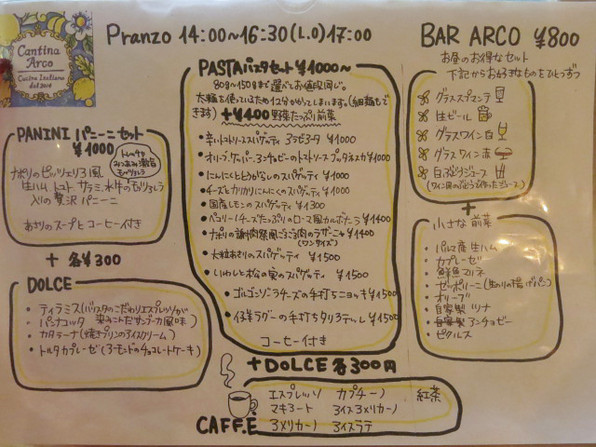 Cantina
Arco
Cucina Italiana
dal 2018
Pranzo 14:00~16:30(L.O)17:00
BAR ARCO ¥800
お昼のお得なセット
下記からお好きなものをひとつずつ
グラススプマンテ
生ビール
グラスワイン白
グラスワイン赤
白ぶどうジュース
(ワイン用のぶどうで作ったジュース)
+
小さな前菜
・パルマ産生ハム
・カプレーゼ
・鮮魚マリネ
・ゼッポリーニ(生のりの揚げパン)
・オリーブ
・自家製ツナ
・自家製アンチョビー
・ピクルス
PASTAパスタセット ¥1000~
80g~150gまで選べてお値段同じ。
太麺を使っているため12分かかってしまいます。(細麺もできます)
+¥400野菜たっぷり前菜
・辛いトマトソーススパゲティ アラビアータ ¥1000
・オリーブケッパーアンチョビーのトマトソース プッタネスカ¥1000
・にんにくととうがらしのスパゲティ ¥1000
・チーズとカリカリにんにくのスパゲティ ¥1000
・国産レモンのスパゲティ ¥1300
・ペコリーノチーズたっぷりのローマ風カルボナーラ ¥1400
・ナポリの謝肉祭風ごろごろ肉のラザーニャ ¥1400
(ワンサイズ)
・大粒あさりのスパゲティ ¥1500
・いわしと松の実のスパゲッティ ¥1500
・ゴルゴンゾーラチーズの手打ちニョッキ ¥1500
・仔羊ラグーの手打ちタリアテッレ ¥1500
コーヒー付き
+DOLCE各300円
PANINI パニーニセット
¥1000
ナポリのピッツェリア風
生ハム トマト サラミ 水牛のモッツァレラ
入りの贅沢パニーニ
あさりのスープとコーヒー付き
+ 各¥300
DOLCE
・ティラミス(バリスタのこだわりエスプレッソが
・パンナコッタ 染みこんだサンブーカ風味)
・カタラーナ(焼プリンのアイスクリーム)
・トルタカプレーゼ(アーモンドのチョコレートケーキ)
CAFFE
エスプレッソ カプチーノ 紅茶
マキアート アイスアメリカーノ
アメリカーノ アイスラテ